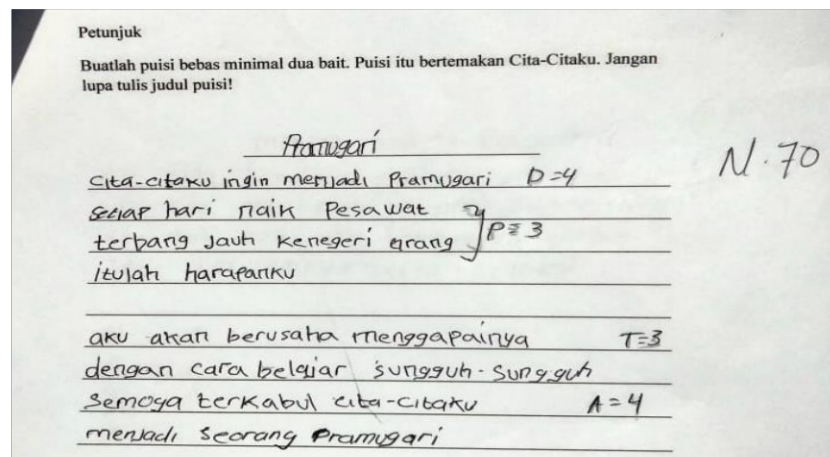 Petunjuk
Buatlah puisi bebas minimal dua bait. Puisi itu bertemakan Cita-Citaku. Jangan
lupa tulis judul puisi!
Pramugari
N. 70
Cita-citaku ingin menjadi Pramugari D=4
setiap hari naik Pesawat
terbang Jauh kenegeri orang P=3
itulah harapanku
aku akan berusaha menggapainya T=3
dengan cara belajar sungguh-sungguh
Semoga terkabul cita-citaku A=4
menjadi seorang Pramugari